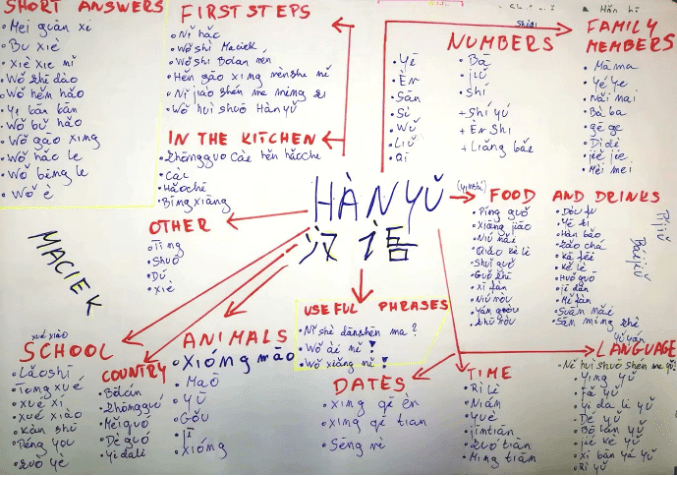 SHORT ANSWERS
• Mei guān xi
• Bu xiè
• Xiè xie nǐ
• Wǒ zhī dào
• Wǒ hěn hǎo
• Yi bān bān
• Wǒ bù hǎo
• Wǒ gāo xing
• Wǒ hǎo le
• Wǒ bèng le
• Wǒ è
FIRST STEPS
• Nǐ hǎo
• Wǒ shi Maciek
• Wǒ shi Bōlán rén
• Hěn gāo xing rènshe nǐ
• Nǐ jiào shén me míng zi
• Wǒ huì shuō Hànyǔ
IN THE KITCHEN
• Zhōngguo cài hěn hǎochī
• Cài
• Hǎochī
• Bīngxiāng
OTHER
• Tīng
• Shuō
• Dú
• Xiě
NUMBERS
• Yī
• Èr
• Sān
• Sì
• Wǔ
• Liù
• Qī
• Bā
• jiǔ
• shí
+ Shí yí
+ Èr Shi
+ Liǎng bǎi
FAMILY MEMBERS
• Māma
• Yé ye
• Nǎi nai
• Bà ba
• gē ge
• Dì di
• jiě jie
• Mèi mei
HÀN YǓ
汉语
FOOD AND DRINKS
• Píng guǒ
• Xiāng jiāo
• Niú nǎi
• Qiǎo kè lì
• Shuǐ guǒ
• Guǒ zhī
• Xī fàn
• Niú ròu
• Dòu fu
• Yě zi
• Hàn bǎo
• Zǎo chá
• Kā fēi
• Kě lè
• Huǒ guō
• jī dàn
• Mǐ fàn
• Suān nǎi
• Sān míng zhì
Pí jiǔ
Báijiǔ
MACIEK
USEFUL PHRASES
• Nǐ shì dānshēn ma?
• Wǒ ài nǐ ♥
• Wǒ xiǎng nǐ ♥
SCHOOL
xué xiào
• Lǎoshī
• Tóng xué
• Xué xí
• Xué xiào
• Kàn shū
• Péng you
• Zuò yè
COUNTRY
• Bōlán
• Zhōngguó
• Měiguó
• Dé guó
• Yì dàlì
ANIMALS
• Xióng māo
• Maō
• Yú
• Gǒu
• jī
• Xióng
DATES
• Xīng qī èr
• Xīng qī tian
• Sēng rì
TIME
• Rì lì
• Nián
• Yuè
• jīntiān
• Zuó tiān
• Míng tiān
LANGUAGE
yǔ yán
• Nǐ huì shuō shén me yǔ?
• Yīng yǔ
• Fǎ yǔ
• Yì dà lì yǔ
• Dé yǔ
• Bō lán yǔ
• jié kè yǔ
• Xī bān yá yǔ
• Rì yǔ